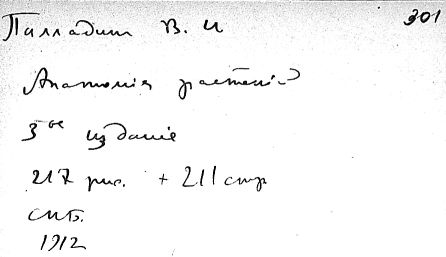 Палладин В. И 301
Анатомія растеній
3ое изданіе
217 рис. + 211 стр
СПБ.
1912